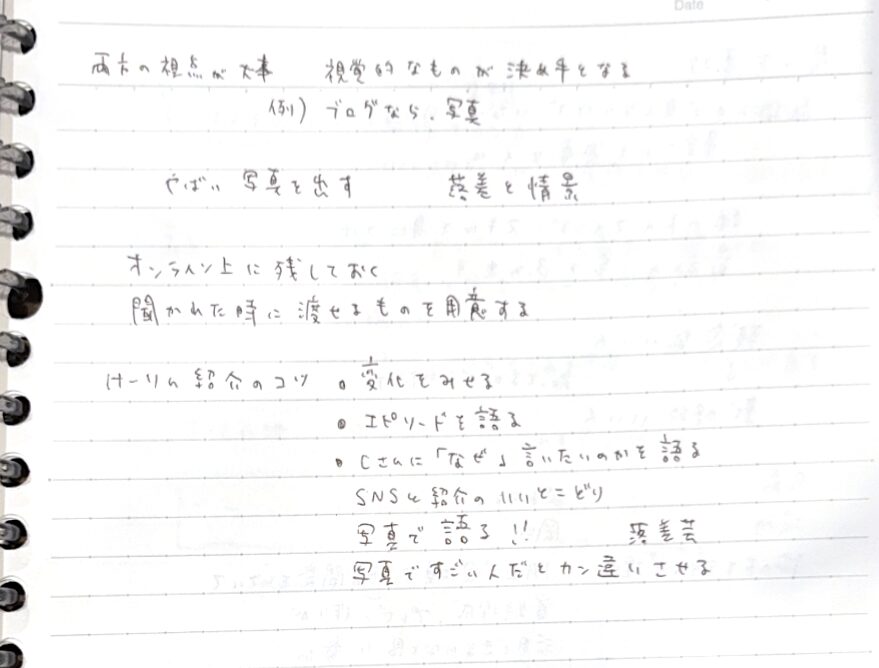 Date
両方の視点が大事 視覚的なものが決め手となる
例) ブログなら、写真
やばい 写真を出す 落差と情景
オンライン上に残しておく
聞かれた時に渡せるものを用意する
紹介のコツ • 変化をみせる
• エピソードを語る
• Cさんに「なぜ」言いたいのかを語る
SNSと紹介のいいとこどり
写真で語る!! 落差芸
写真ですごい人だとカン違いさせる